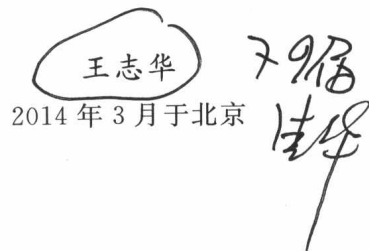 王志华
79届
2014 年 3 月于北京